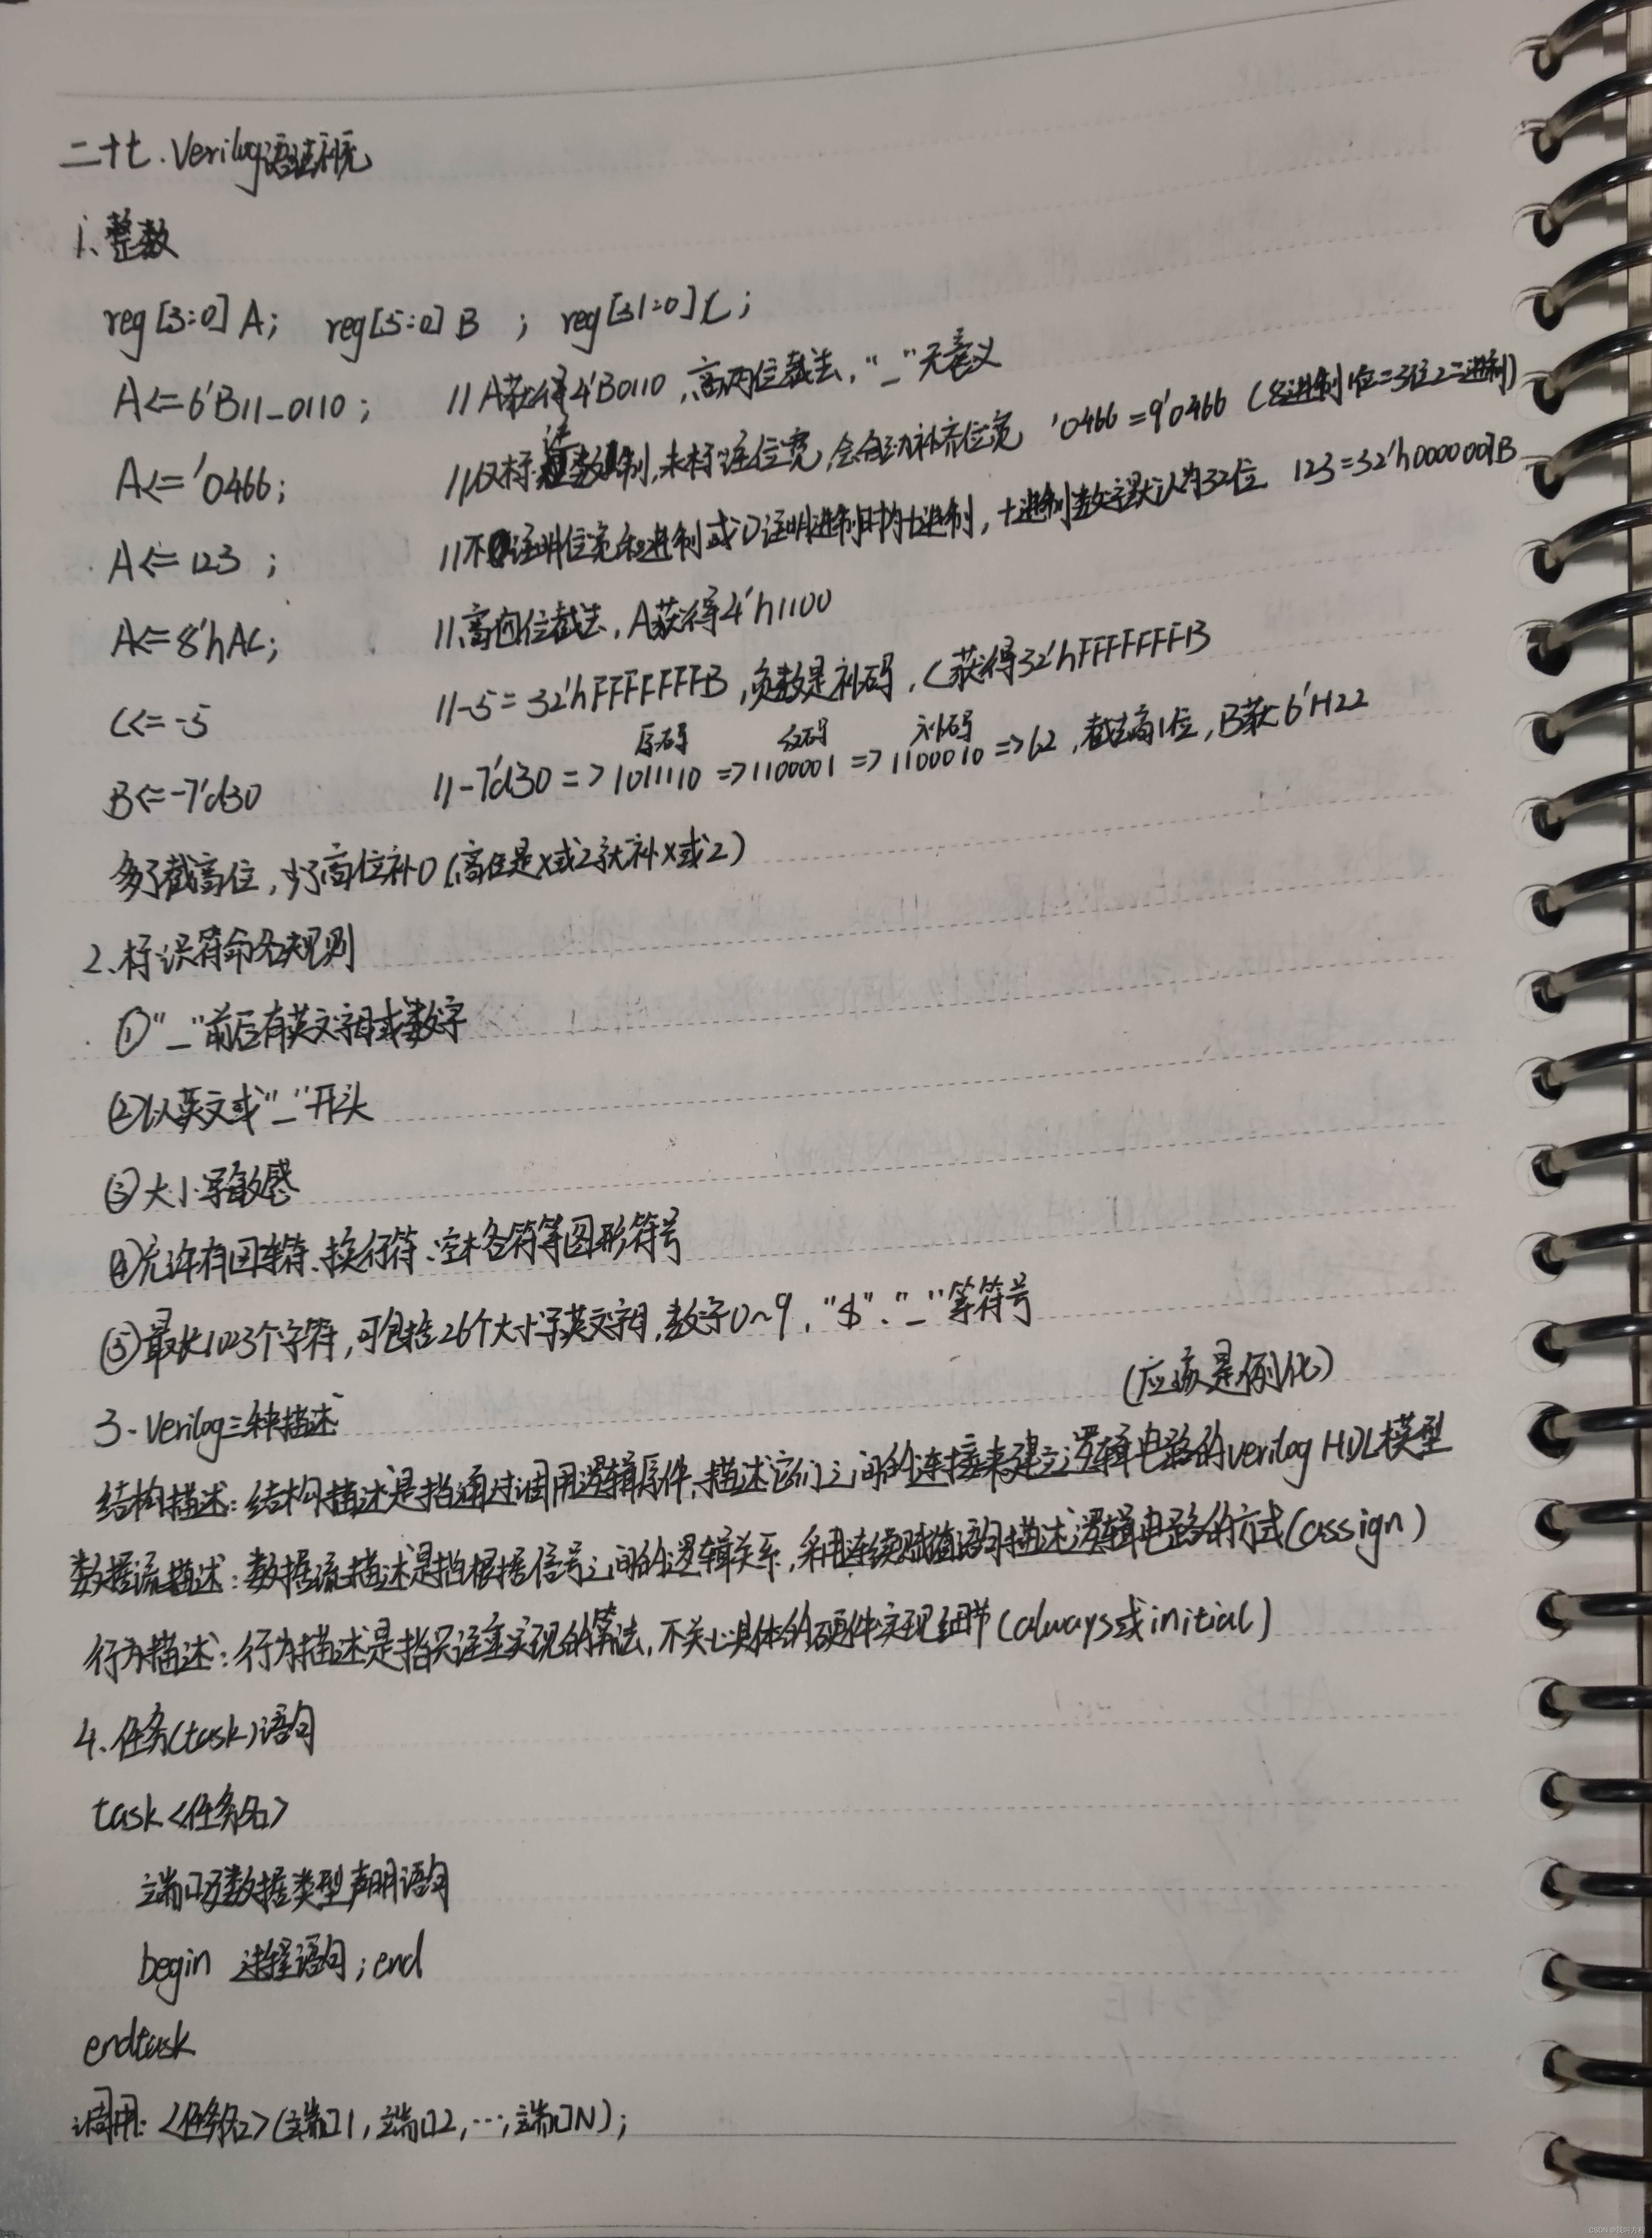 二十七.Verilog语法补充
1、整数
reg[3:0] A; reg[5:0] B ; reg[31:0] C;
A<=6'B11_0110; //A获得4'B0110,高两位截去,“_”无意义
A<='O466; //仅标注数制,未标注位宽,会自动补齐位宽 'O466=9'O466(8进制1位=3位2进制)
A<=123; //不注明位宽和进制或只注明进制时为十进制,十进制数字默认为32位 123=32'h0000007B
A<=8'hAC; //高四位截去,A获得4'h1100
C<=-5 //-5=32'hFFFFFFFB,负数是补码,C获得32'hFFFFFFFB
原码 反码 补码
B<=-7'd30 //-7'd30=>1011110=>1100001=>1100010=>62,截去高1位,B获6'H22
多了截高位,少了高位补0(高位是x或z就补x或z)
2、标识符命名规则
①“_”前后有英文字母或数字
②以英文或“_”开头
③大小写敏感
④允许有回车符、换行符、空格符等图形符号
⑤最长1023个字符,可包括26个大小写英文字母,数字0~9,“$”、“_”等符号
3.Verilog三种描述
(应该是例化)
结构描述:结构描述是指通过调用逻辑原件,描述它们之间的连接来建立逻辑电路的verilog HDL模型
数据流描述:数据流描述是指根据信号之间的逻辑关系,采用连续赋值语句描述逻辑电路的方式(assign)
行为描述:行为描述是指只注重实现的算法,不关心具体的硬件实现细节(always或initial)
4、任务(task)语句
task<任务名>
端口及数据类型声明语句
begin 过程语句;end
endtask
调用:<任务名>(端口1,端口2,…,端口N);